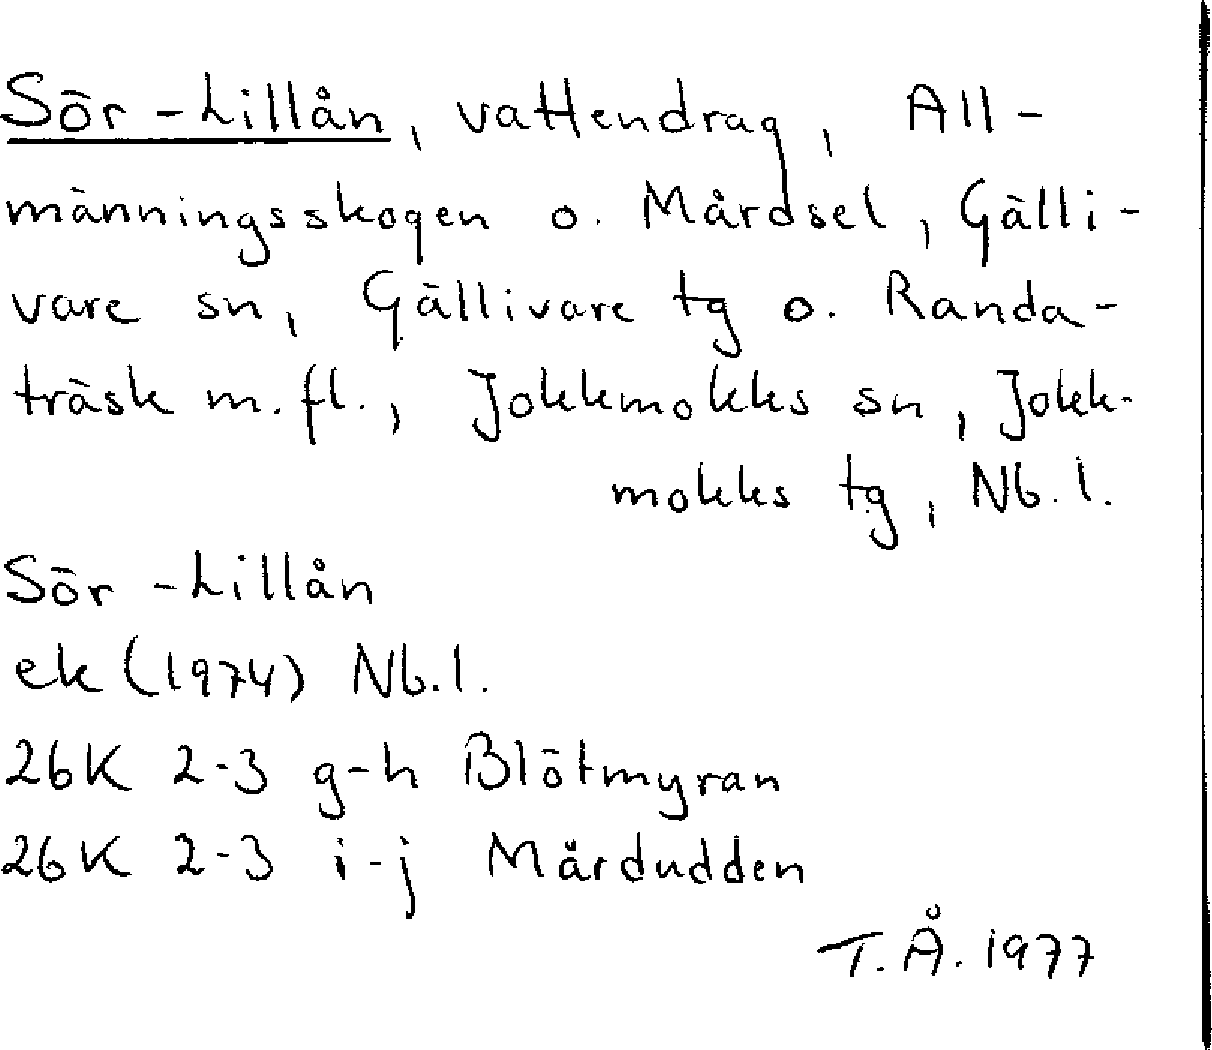 Sör-Lillån, vattendrag, All-
männingsskogen o. Mårdsel, Gälli-
vare sn, Gällivare tg o. Randa-
träsk m.fl., Jokkmokks sn, Jokk-
mokks tg, Nb.l.
Sör-Lillån
ek (1974) Nb.l.
26K 2-3 g-h Blötmyran
26K 2-3 i-j Mårdudden
T.Å. 1977